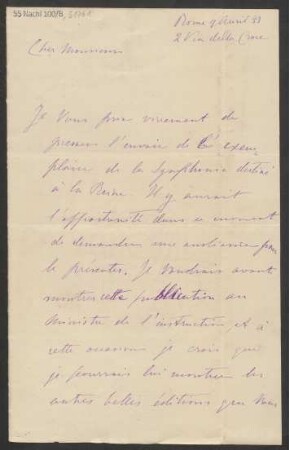 55 Nachl 100/B,
Rome 9 Avril 83
2 Via della Croce
Cher Monsieur
Je Vous prie vivement de
presser l'envoie de l'exem-
plaire de la Symphonie destiné
à la Reine. Il y aurait
l'opportunité dans ce moment
de demander une audience pour
le présenter. Je voudrais avant
montrer cette publication au
Ministre de l'instruction, et à
cette occasion je crois que
je pourrais lui montrer les
autres belles éditions que Vous